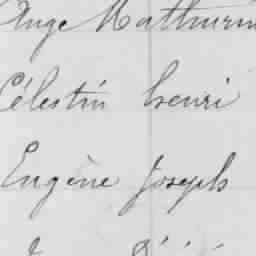 Ange Mathurin
Célestin henri
Eugène Joseph